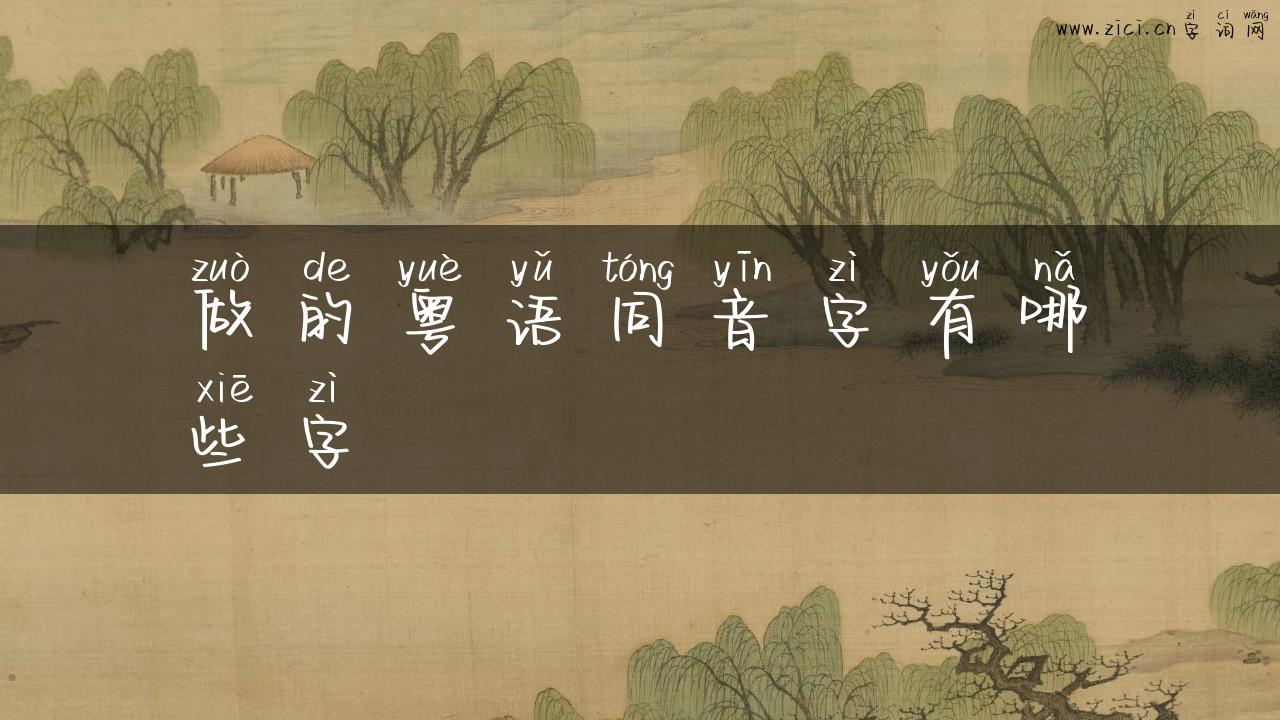 zì cí wǎng
www.zici.cn 字 词 网
zuò de yuè yǔ tóng yīn zì yǒu nǎ
做 的 粤 语 同 音 字 有 哪
xiē zì
些 字